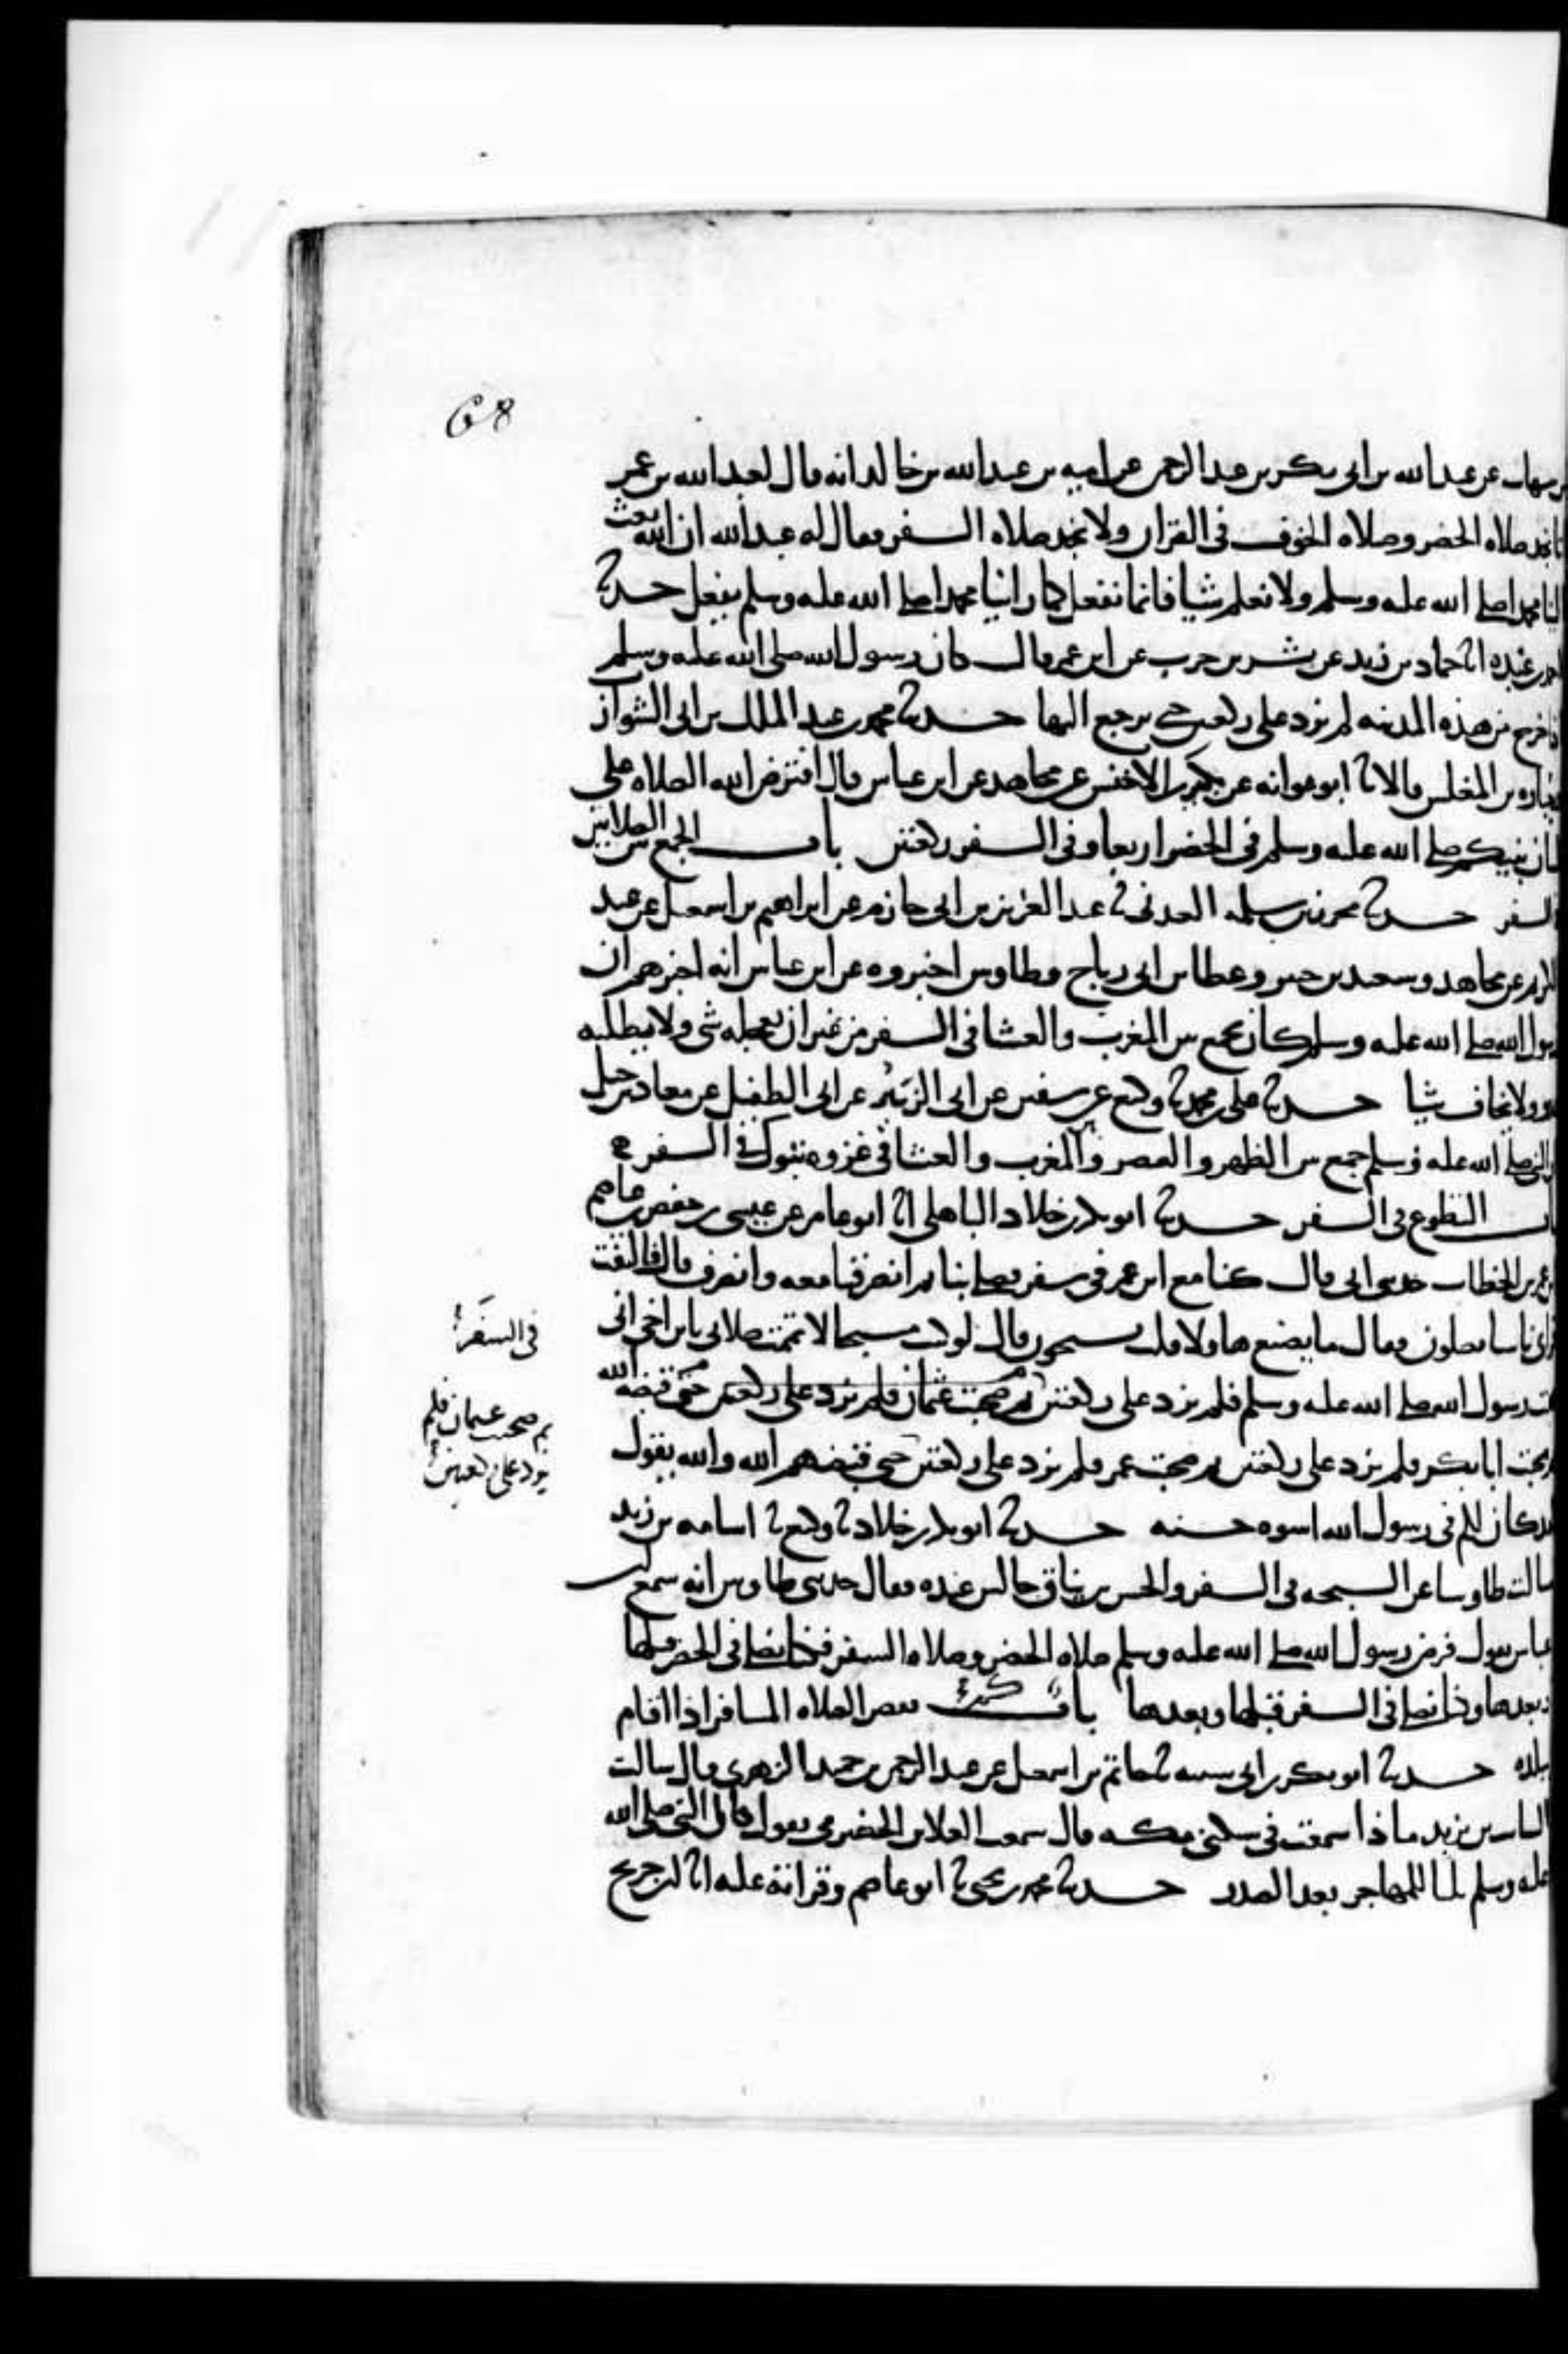 68
شهاب عن عبد الله بن ابى بكر بن عبد الرحمن عن اميه بن عبد الله بن خالد انه قال لعبد الله بن عمر
نجد صلاه الحضر وصلاه الخوف فى القران ولا نجد صلاه السفر فقال له عبد الله ان الله بعث
الينا محمدا صلى الله عليه وسلم ولا نعلم شيا فانما نفعل كما راينا محمدا صلى الله عليه وسلم يفعل حدثنا
احمد بن عبده انا حماد بن زيد عن بشر بن حرب عن ابن عمر قال كان رسول الله صلى الله عليه وسلم
اذا خرج من هذه المدينه لم يزد على ركعتين حتى يرجع اليها حدثنا محمد بن عبد الملك بن ابى الشوارب
وجباره بن المغلس قالا نا ابو عوانه عن بكير بن الاخنس عن مجاهد عن ابن عباس قال افترض الله الصلاه على
لسان نبيكم صلى الله عليه وسلم فى الحضر اربعا وفى السفر ركعتين باب الجمع بين الصلاتين
فى السفر حدثنا محرز بن سلمه العدنى نا عبد العزيز بن ابى حازم عن ابراهيم بن اسمعيل عن عبد
الكريم عن مجاهد وسعيد بن جبير وعطا بن ابى رباح وطاوس اخبروه عن ابن عباس انه اخبرهم ان
رسول الله صلى الله عليه وسلم كان يجمع بين المغرب والعشا فى السفر من غير ان يعجله شى ولا يطلبه
عدو ولا يخاف شيا حدثنا على بن محمد نا وكيع عن سفين عن ابى الزبير عن ابى الطفيل عن معاذ بن جبل
ان النبى صلى الله عليه وسلم جمع بين الظهر والعصر والمغرب والعشا فى غزوه تبوك فى السفر
باب التطوع فى السفر حدثنا ابو بكر بن خلاد الباهلى انا ابو عامر عن عيسى بن حفص بن عاصم
بن عمر بن الخطاب حدثنى ابى قال كنا مع ابن عمر فى سفر فصلى بنا ثم انصرفنا معه وانصرف قال فالتفت
فراى ناسا يصلون فقال ما يصنع هاولا قلت يسبحون قال لو كنت مسبحا لاتممت صلاتى يابن اخى انى
صحبت رسول الله صلى الله عليه وسلم فلم يزد على ركعتين ثم صحبت عثمان فلم يزد على ركعتين حتى قبضه الله
ثم صحبت ابا بكر فلم يزد على ركعتين ثم صحبت عمر فلم يزد على ركعتين حتى قبضهم الله والله يقول
لقد كان لكم فى رسول الله اسوه حسنه حدثنا ابو بكر بن خلاد نا وكيع نا اسامه بن زيد
سالت طاوسا عن السبحه فى السفر والحسن بن يناق جالس عنده فقال حدثنى طاوس انه سمع ابن
عباس يقول فرض رسول الله صلى الله عليه وسلم صلاه الحضر وصلاه السفر فكنا نصلى فى الحضر قبلها
وبعدها وكنا نصلى فى السفر قبلها وبعدها باب كم يقصر الصلاه المسافر اذا اقام
ببلده حدثنا ابو بكر بن ابى شيبه نا حاتم بن اسمعيل عن عبد الرحمن بن حميد الزهرى قال سالت
السايب بن يزيد ماذا سمعت فى سكنى مكه قال سمعت العلا بن الحضرمى يقول قال النبى صلى الله
عليه وسلم ثلثا للمهاجر بعد الصدر حدثنا محمد بن يحيى نا ابو عاصم وقراته عليه انا ابن جريج
فى السفر
ثم صحبت عثمان فلم
يزد على ركعتين